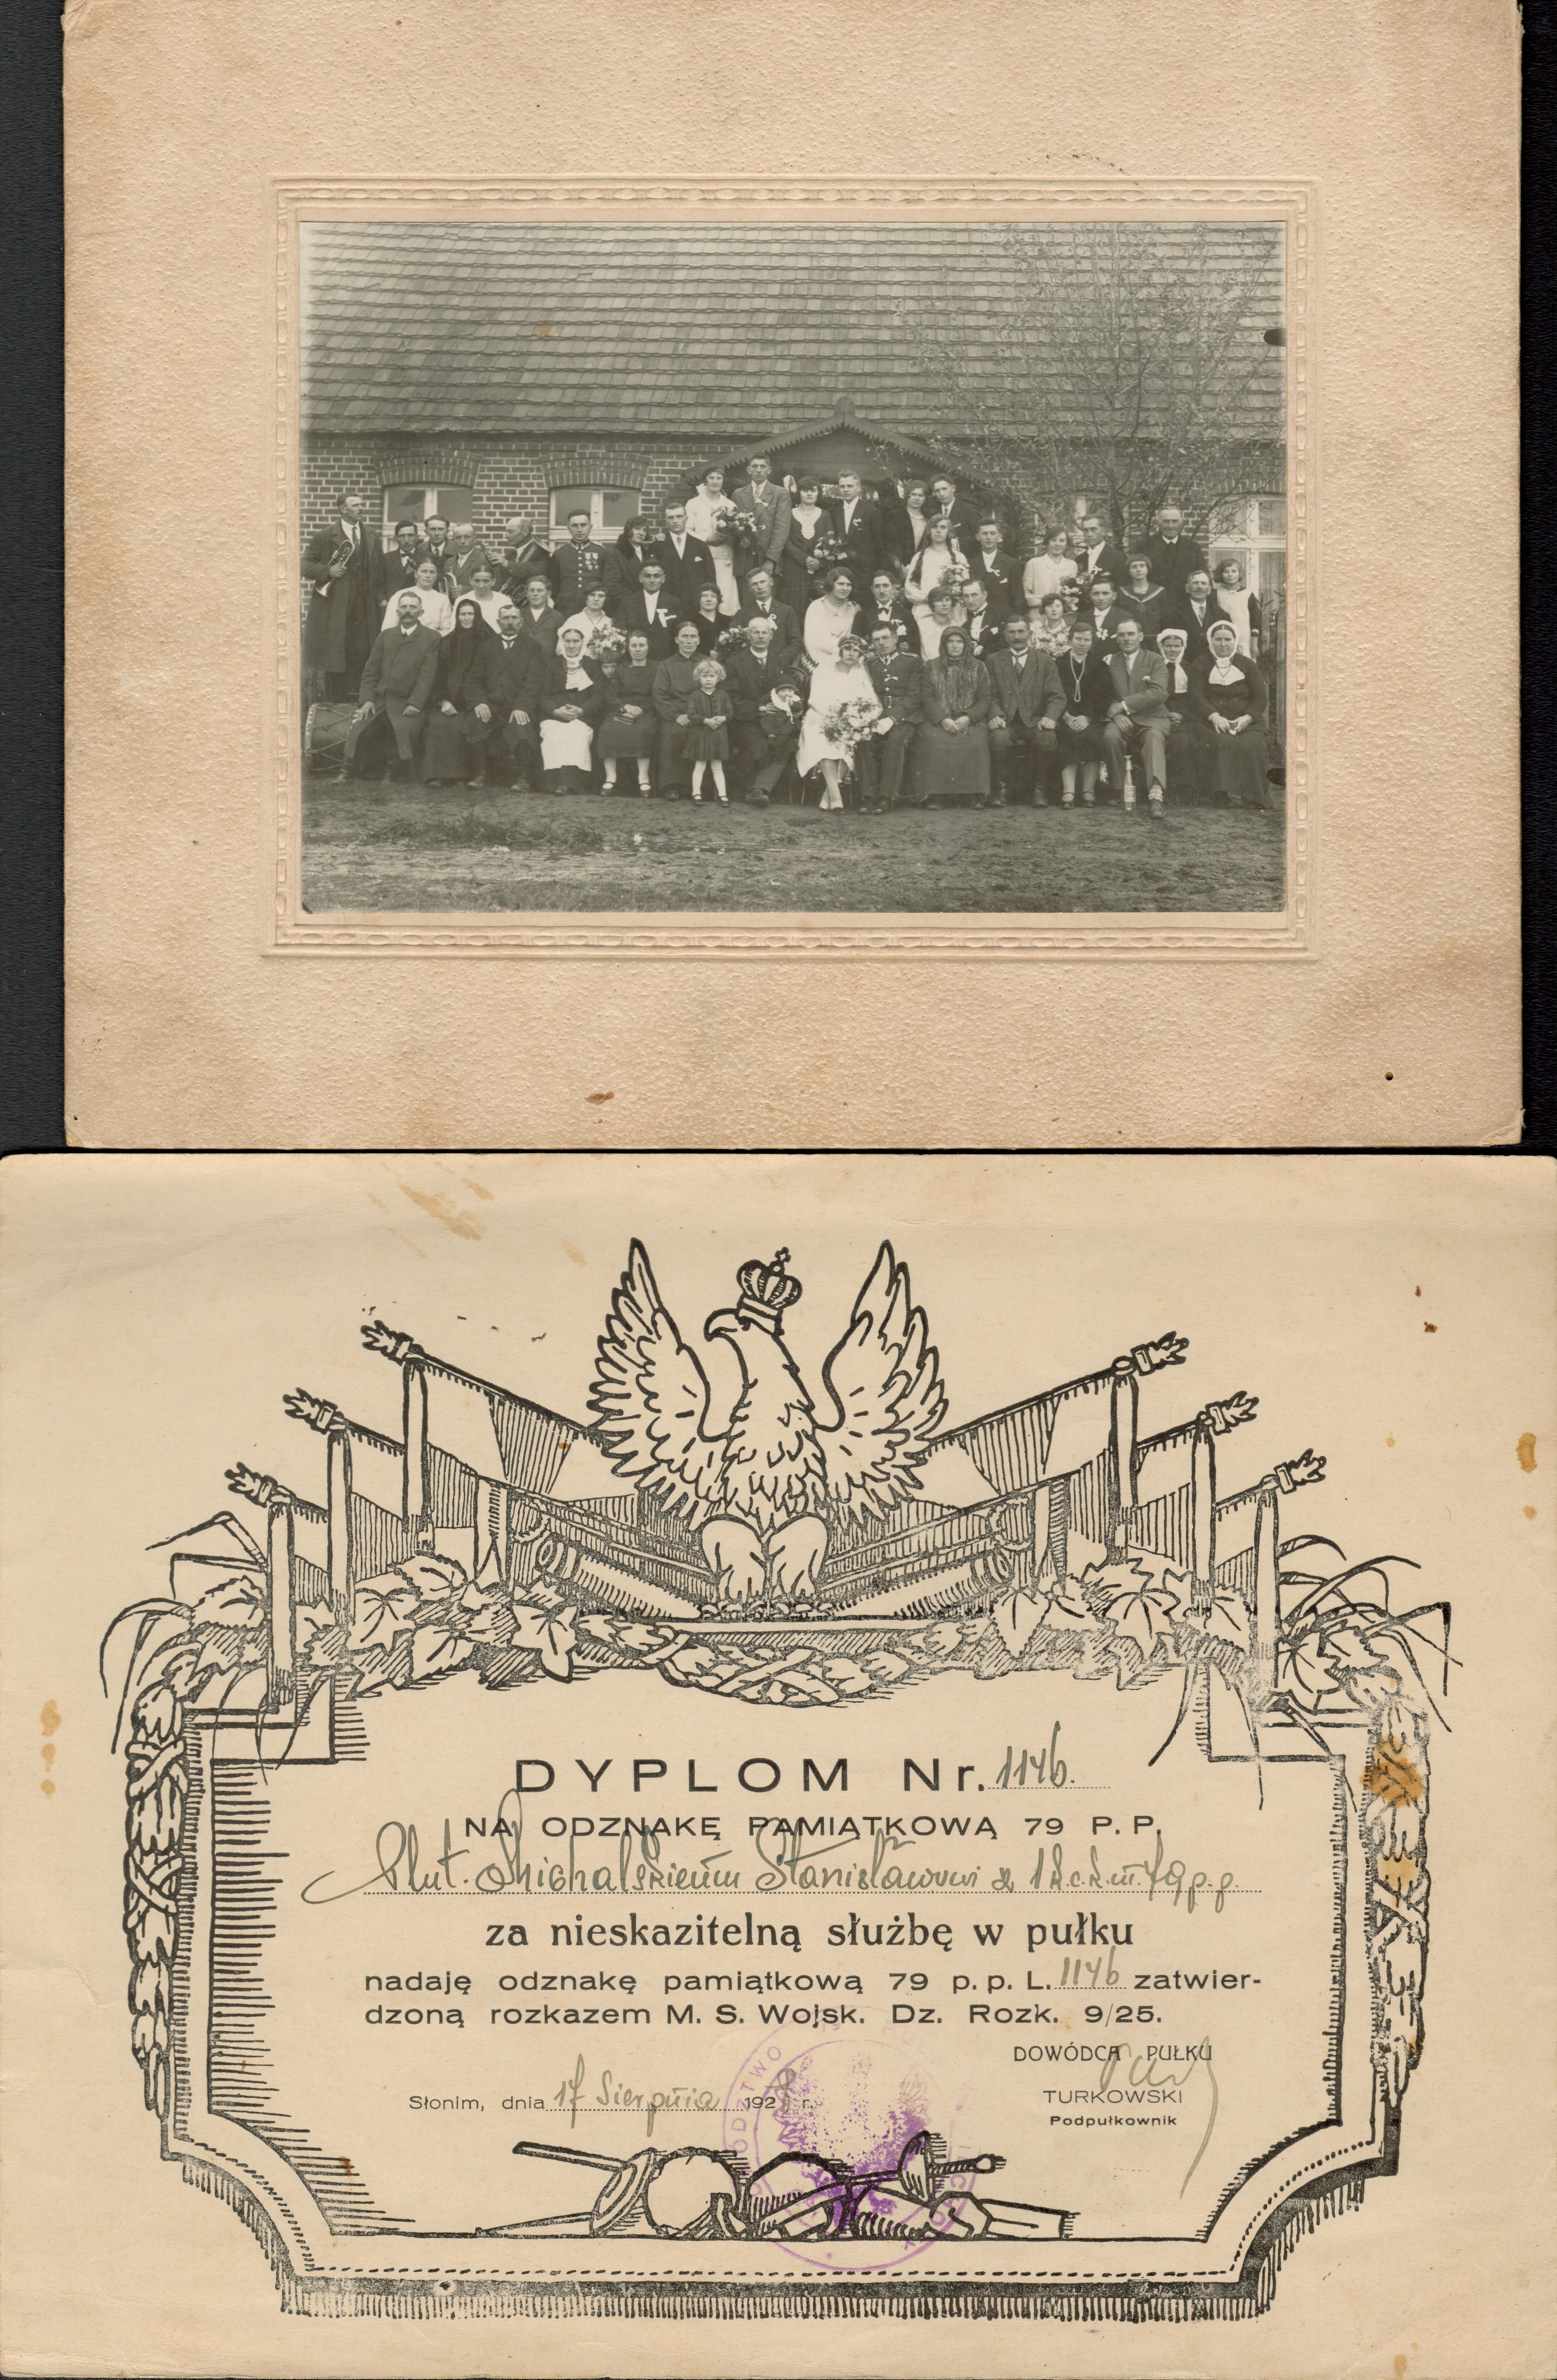 DYPLOM Nr. 1146.
NA ODZNAKĘ PAMIĄTKOWĄ 79 P. P.
Plut. Michalskiemu Stanisławowi z 1 k.c.k.m. 79 p.p.
za nieskazitelną służbę w pułku
nadaję odznakę pamiątkową 79 p. p. L. 1146 zatwier-
dzoną rozkazem M. S. Wojsk. Dz. Rozk. 9/25.
DOWÓDCA PUŁKU
Słonim, dnia 17 Sierpnia 1928 r.
TURKOWSKI
Podpułkownik